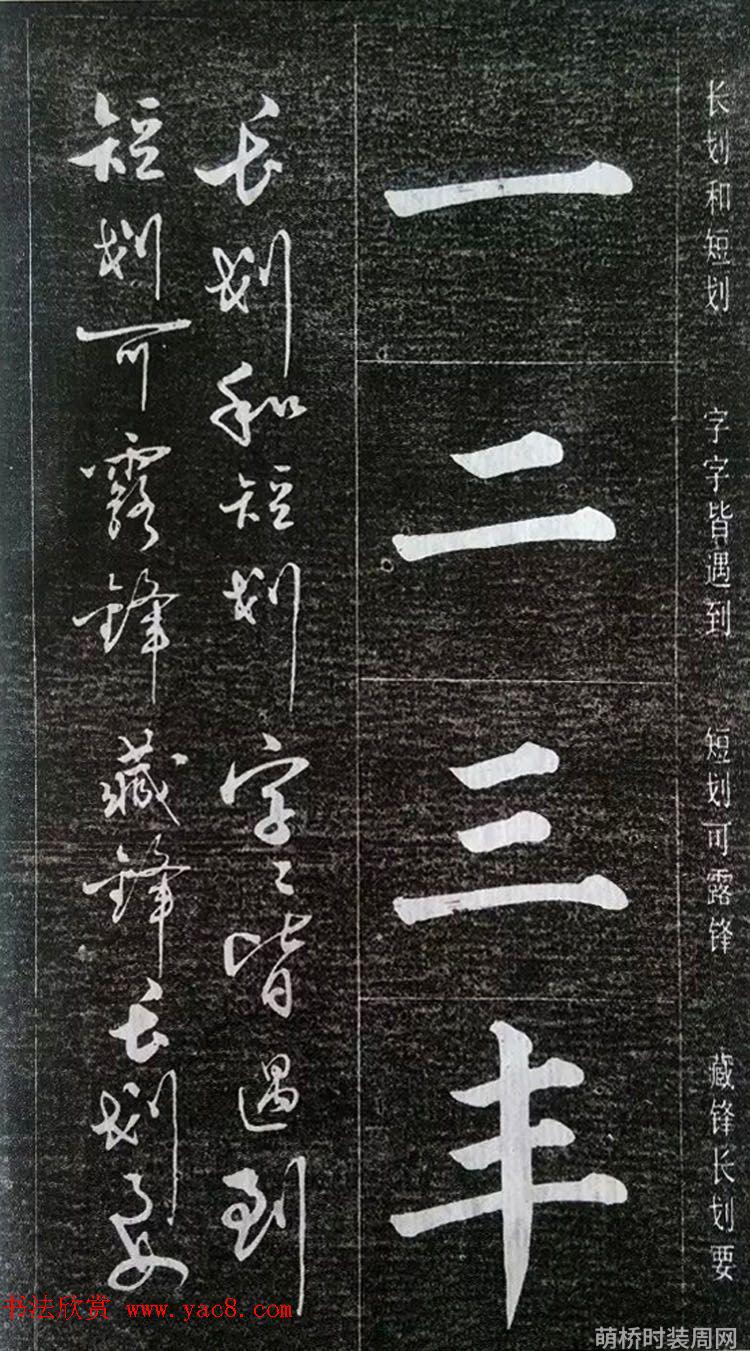 长划和短划 字字皆遇到 短划可露锋 藏锋长划要
一
二
三
丰
长划和短划字〻皆遇到
短划可露锋藏锋长划要
书法欣赏 www.yac8.com
萌桥时装周网